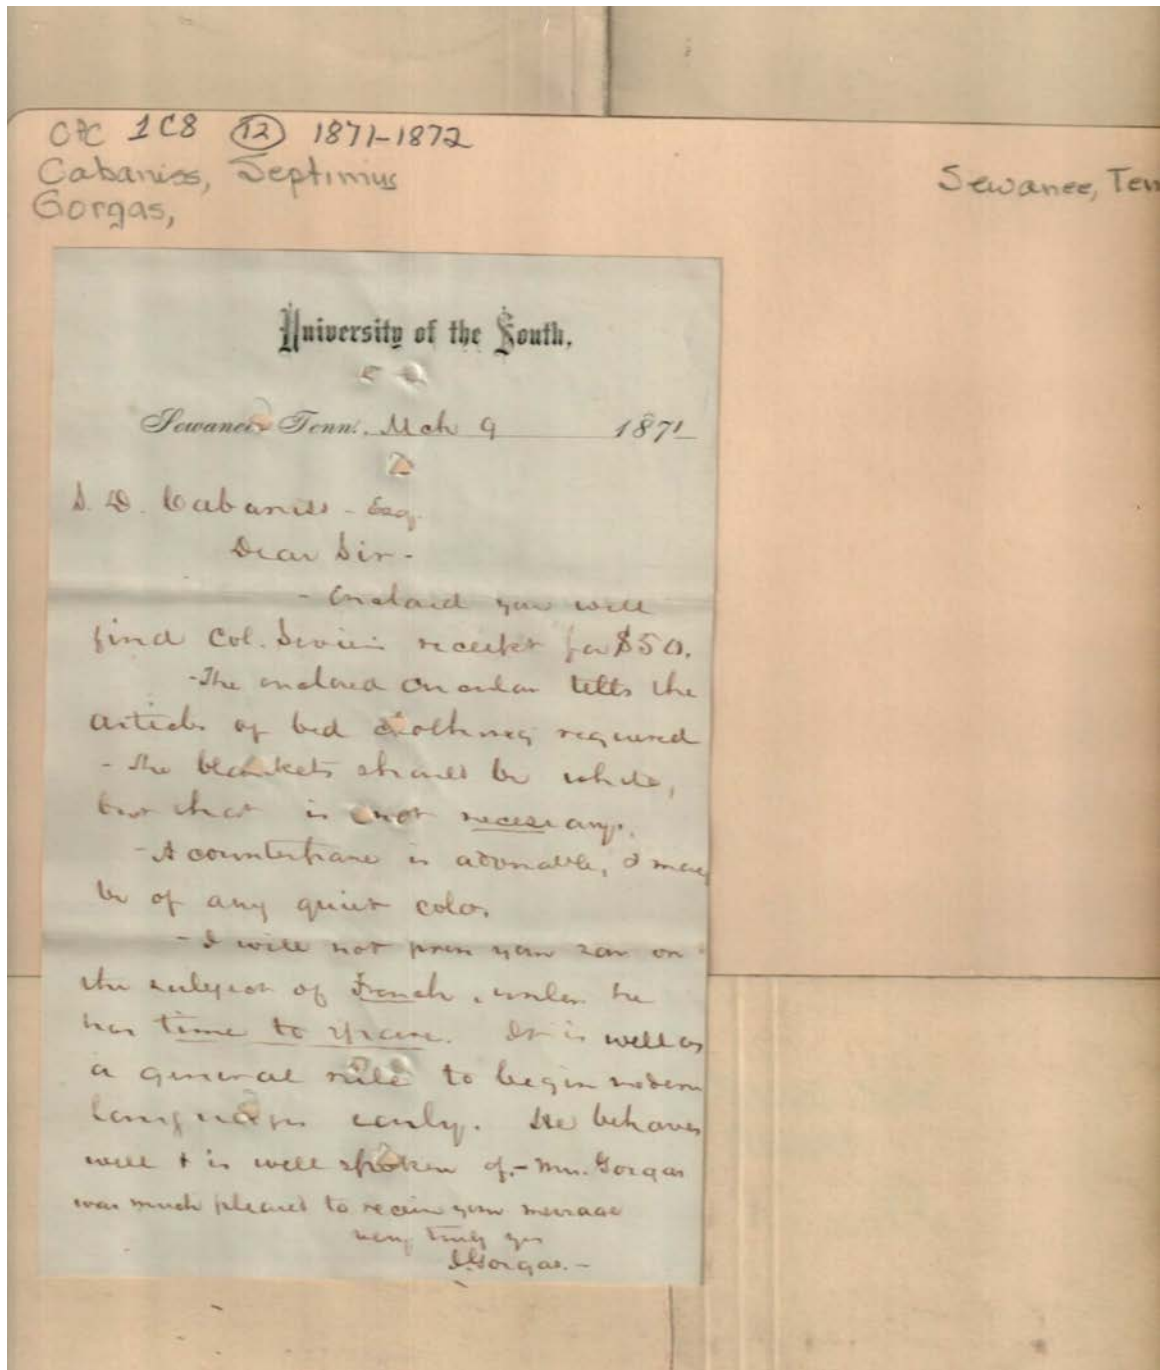 CPC 1C8 12 1871-1872
Cabaniss, Septimus
Gorgas,
Sewanee, Ten
University of the South.
Sewanee Tenn. Mch 9 1871
S. D. Cabaniss - Esq.
Dear Sir -
- Enclosed you will
find Col. Sevier's receipt for $50.
- The enclosed circular tells the
articles of bed clothing required
- The blankets should be white,
but that is not necessary.
- A counterpane is advisable, & may
be of any quiet color.
- I will not press your son on
the subject of French, unless he
has time to spare. It is well as
a general rule to begin modern
languages early. He behaves
well & is well spoken of. - Mrs. Gorgas
was much pleased to receive your message
very truly yrs
J. Gorgas. -